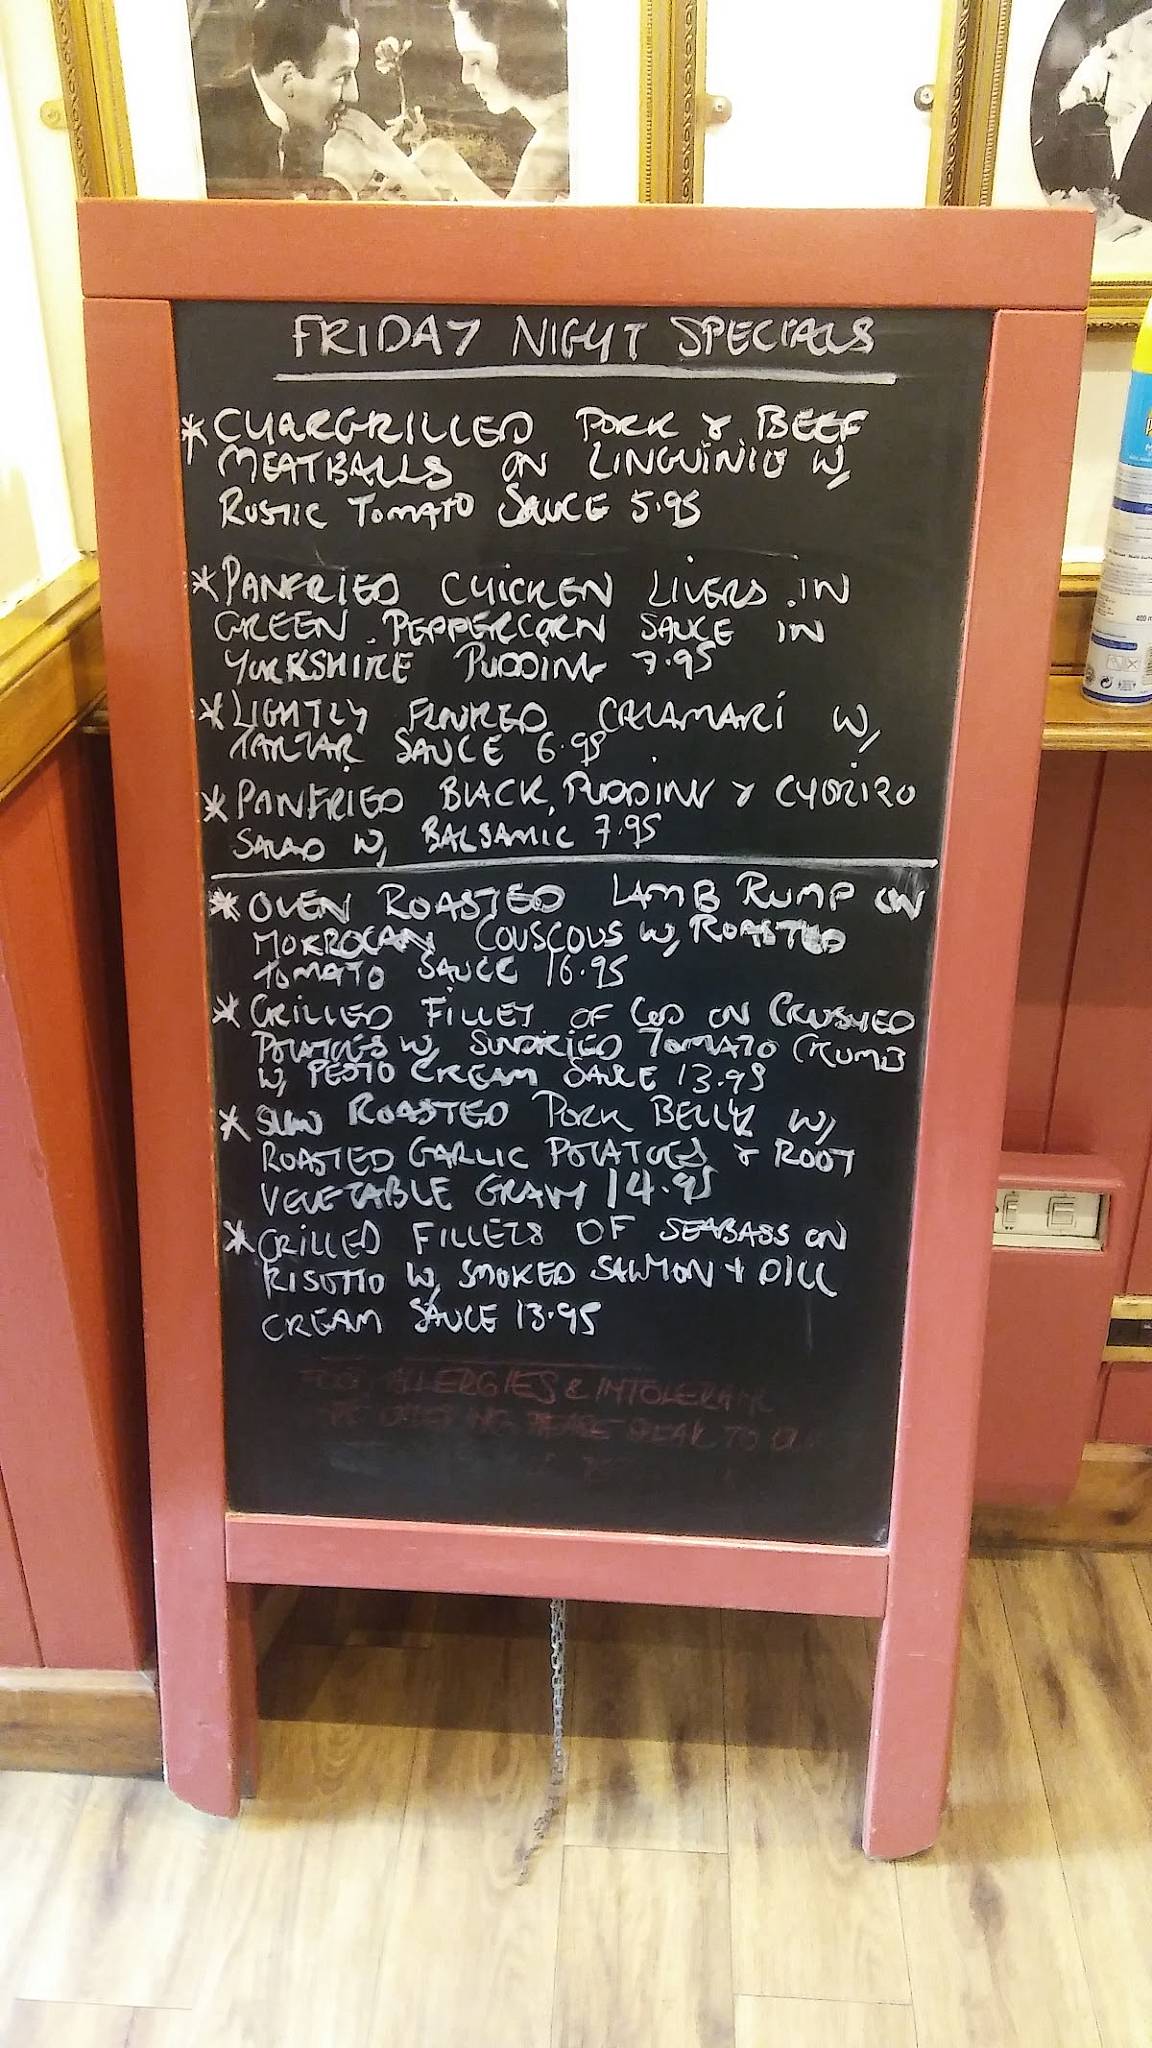 FRIDAY NIGHT SPECIALS
* CHARGRILLED PORK & BEEF
MEATBALLS ON LINGUINIE W/
RUSTIC TOMATO SAUCE 5.95
* PANFRIED CHICKEN LIVERS IN
GREEN PEPPERCORN SAUCE IN
YORKSHIRE PUDDING 7.95
* LIGHTLY FLOURED CALAMARI W/
TARTAR SAUCE 6.95
* PANFRIED BLACK PUDDING & CHORIZO
SALAD W/ BALSAMIC 7.95
* OVEN ROASTED LAMB RUMP ON
MORROCAN COUSCOUS W/ ROASTED
TOMATO SAUCE 16.95
* GRILLED FILLET OF COD ON CRUSHED
POTATOES W/ SUNDRIED TOMATO CRUMB
W/ PESTO CREAM SAUCE 13.95
* SLOW ROASTED PORK BELLY W/
ROASTED GARLIC POTATOES & ROOT
VEGETABLE GRAVY 14.95
* GRILLED FILLETS OF SEABASS ON
RISOTTO W/ SMOKED SALMON + DILL
CREAM SAUCE 13.95
FOOD ALLERGIES & INTOLERANC
ORDERING PLEASE SPEAK TO OUR